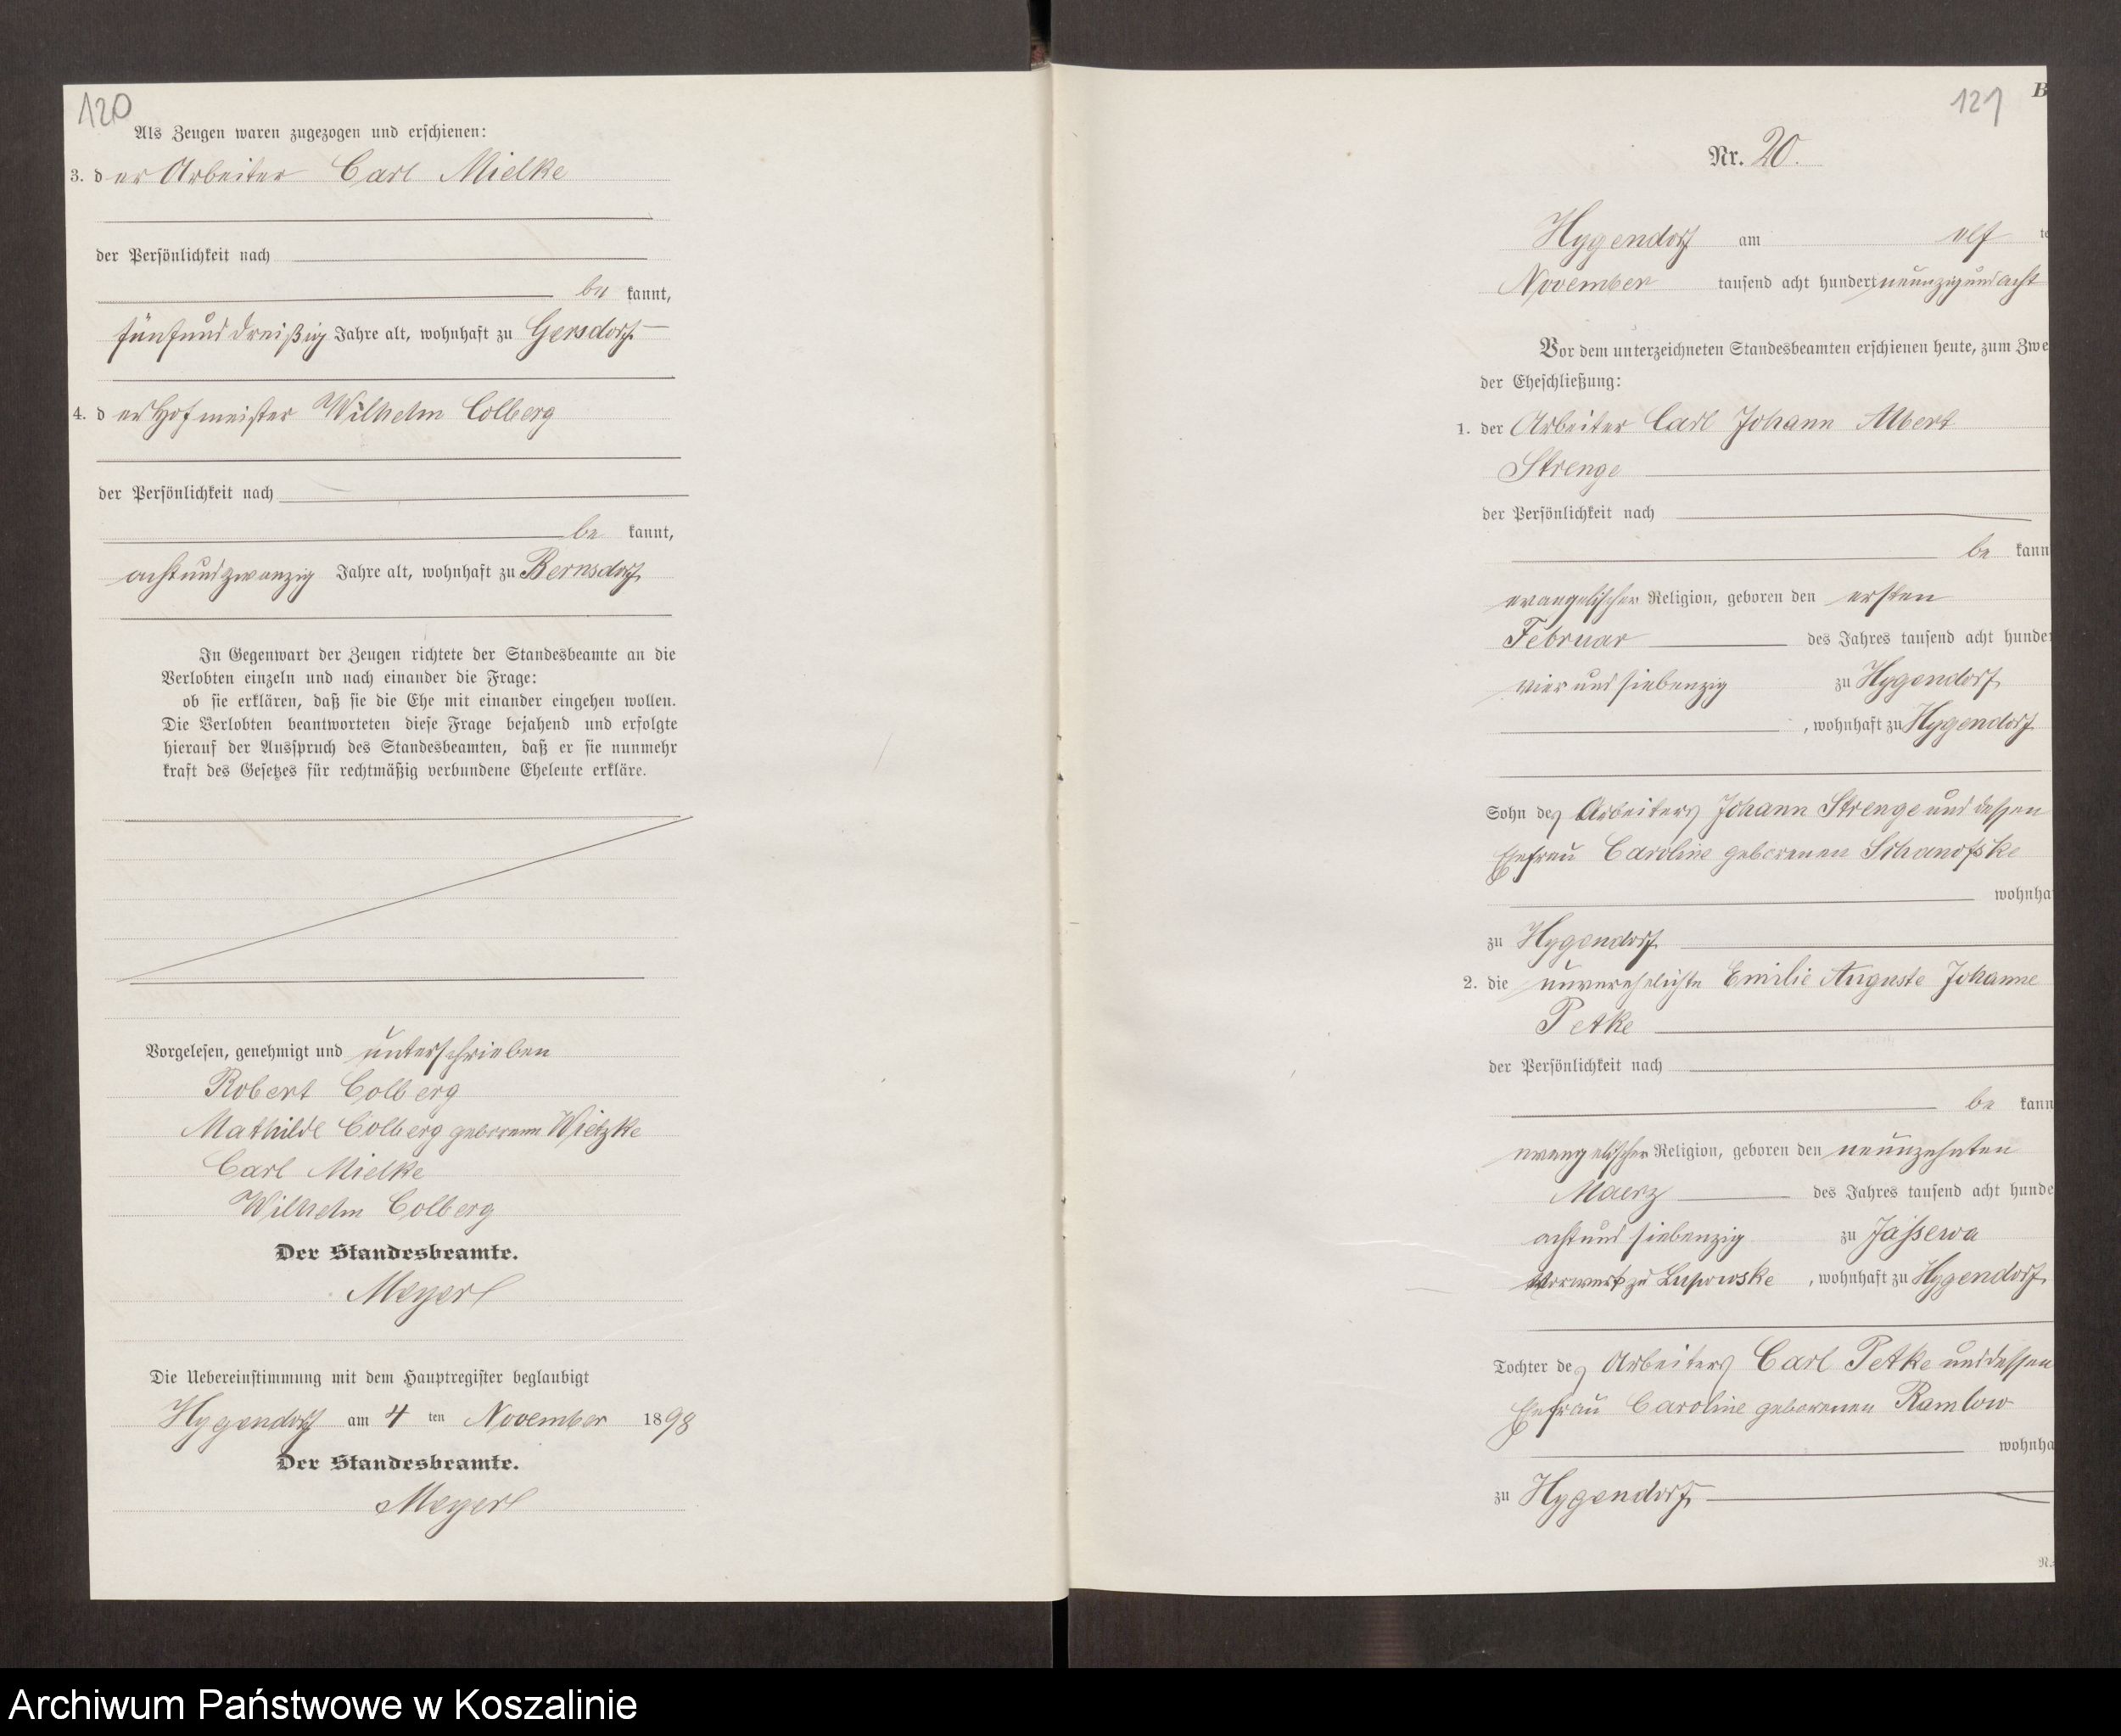 120
Als Zeugen waren zugezogen und erschienen:
3. der Arbeiter Carl Mielke
der Persönlichkeit nach
be kannt,
fünfunddreißig Jahre alt, wohnhaft zu Gersdorf
4. der Hofmeister Wilhelm Colberg
der Persönlichkeit nach
be kannt,
achtundzwanzig Jahre alt, wohnhaft zu Bernsdorf
In Gegenwart der Zeugen richtete der Standesbeamte an die
Verlobten einzeln und nach einander die Frage:
ob sie erklären, daß sie die Ehe mit einander eingehen wollen.
Die Verlobten beantworteten diese Frage bejahend und erfolgte
hierauf der Ausspruch des Standesbeamten, daß er sie nunmehr
kraft des Gesetzes für rechtmäßig verbundene Eheleute erkläre.
Vorgelesen, genehmigt und unterschrieben
Robert Colberg
Mathilde Colberg geborene Wietzke
Carl Mielke
Wilhelm Colberg
Der Standesbeamte.
Meyerl
Die Uebereinstimmung mit dem Hauptregister beglaubigt
Hygendorf am 4 ten November 1898
Der Standesbeamte.
Meyerl
121
B
Nr. 20.
Hygendorf am elf te
November tausend acht hundert neunzig und acht
Vor dem unterzeichneten Standesbeamten erschienen heute, zum Zwe
der Eheschließung:
1. der Arbeiter Carl Johann Albert
Strenge
der Persönlichkeit nach
be kann
evangelischer Religion, geboren den ersten
Februar des Jahres tausend acht hunder
vier und siebenzig zu Hygendorf
, wohnhaft zu Hygendorf
Sohn des Arbeiters Johann Strenge und dessen
Ehefrau Caroline geborenen Schanofske
wohnha
zu Hygendorf
2. die unverehelichte Emilie Auguste Johanne
Petke
der Persönlichkeit nach
be kann
evangelischer Religion, geboren den neunzehnten
Maerz des Jahres tausend acht hunde
acht und siebenzig zu Jassewa
Vorwerk zu Lupowske , wohnhaft zu Hygendorf
Tochter des Arbeiters Carl Petke und dessen
Ehefrau Caroline geborenen Ramlow
wohnha
zu Hygendorf
N.
Archiwum Państwowe w Koszalinie